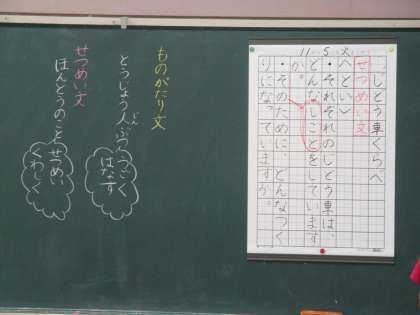 じどう車くらべ
せつめい文
11 5 火
〈とい〉
・それぞれのじどう車は、
どんなしごとをしています
か。
・そのために、どんなつく
りになっていますか。
ものがたり文
とうじょう人ぶつ
うごく
はなす
せつめい文
ほんとうのこと
せつめい
くわしく